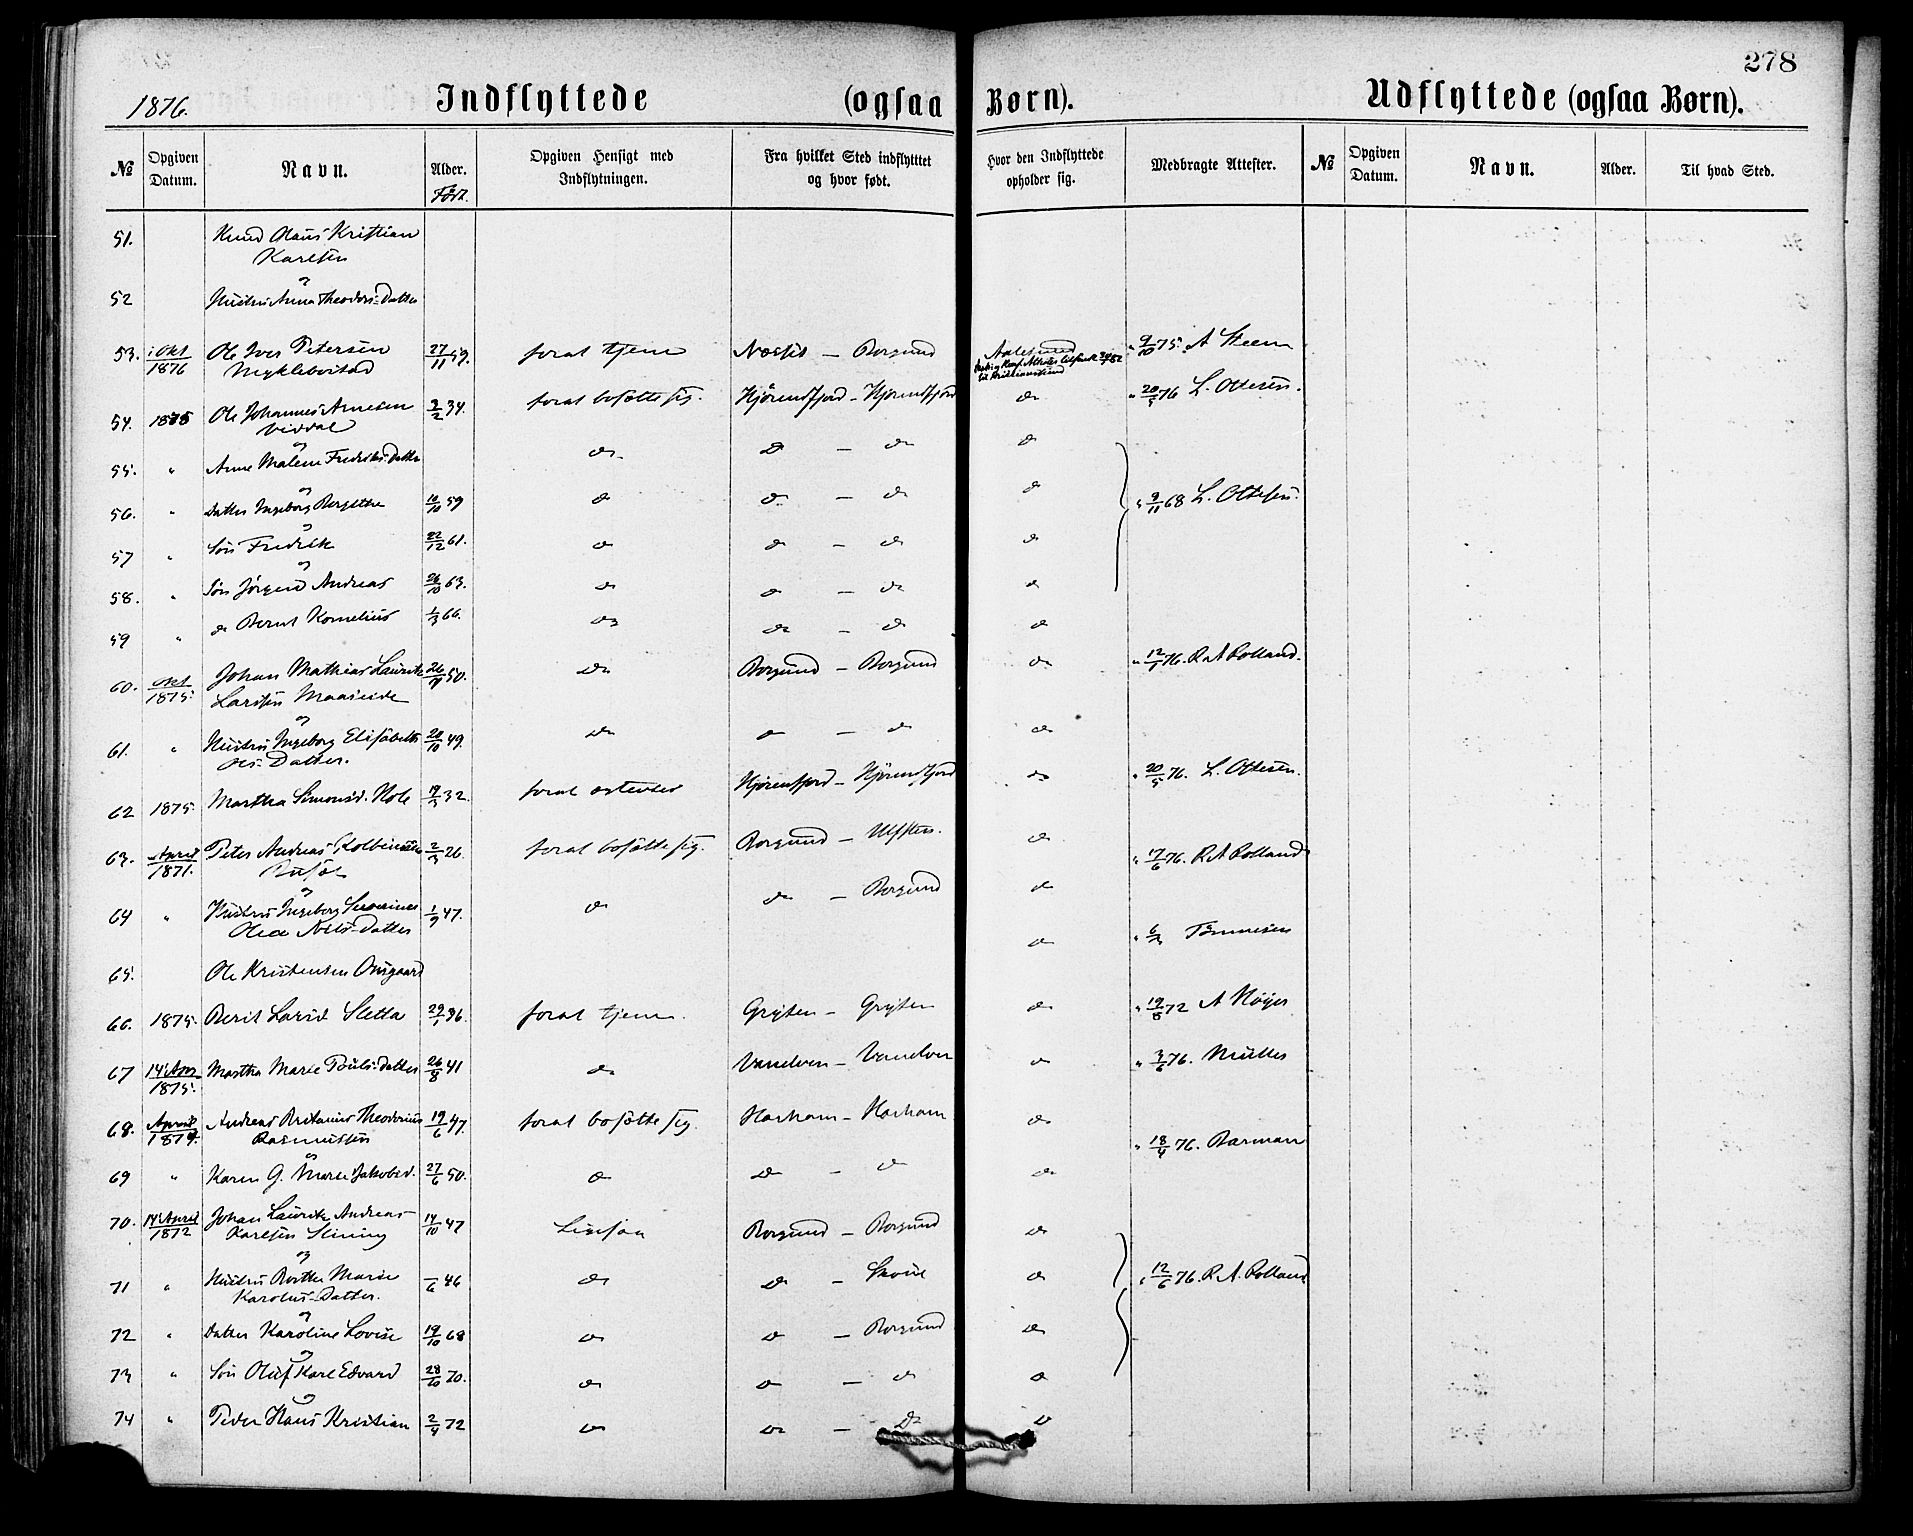 278
1876.
Indflyttede (ogsaa Børn).
Udflyttede (ogsaa Børn).
No
Opgiven Datum.
Navn.
Alder.
Født.
Opgiven Hensigt med Indflytningen.
Fra hvilket Sted indflytttet og hvor født.
Hvor den Indflyttede opholder sig.
Medbragte Attester.
No
Opgiven Datum.
Navn.
Alder.
Til hvad Sted.
51. Knud Olaus Kristian
Karlsen
og
52 Hustru Anna Theodors-Datter
53. i Okt 1876 Ole Iver Petersen 27/11 59. forat tjene Borgund Aalesund 9/10 75. A Steen
54. 1875 Ole Johannes Arnesen 3/2 34. forat bosætte sig. Hjørendfjord - Hjørendfjord do " 20/5 76 L. Ottesen.
Viddal
og
55. " Anne Malene Fredriks-Datter do do - do do
og
56. " Datter Ingeborg Bergithe 10/10 59 do do - do do " 9/11 68 L. Ottesen.
og
57 " Søn Fredrik 22/12 61. do do - do do
og
58. " Søn Jørgen Andreas 26/10 63. do do - do do
59 " do Bernt Kornelius 1/3 66. do do - do do
60. Okt 1875. Johan Mathias Lauritz 50. do Borgund - Borgund do " 76. R A Rolland.
Larsen Maaseide
og
61. " Hustru Ingeborg Elisabeth 20/10 49. do do - do do
Ols-Datter.
62 1875. Martha Simonsd. Hole 32. forat Hjørendfjord - Hjørendfjord do " 20/5 76. L. Ottesen.
63. April 1871. Peter Andreas 26. forat bosætte sig. Borgund - Ulfsten. do " 17/6 76. R A Rolland
og
64 " Hustru Ingeborg Severine 1/9 47. do do - Borgund do
Olea Nils-Datter
do " Tønnesen
65. Ole Kristensen
66. 1875. Berit Larsd Sletta 36. forat tjene. Grytten - Grytten do " 19/8 72 A Høyer
67 1875. Martha Marie Pouls-Datter 26/8 41 do Vanelven - Vanelven do " 3/6 76. Müller
68. April Andreas Theodorius 19/6 47. forat bosætte sig. Harham - Harham do
Rasmussen
" 18/4 76. Barman
og
69 " Karen G. Marie Jakobsd. 27/6 50. do do - do do
70. 14 April 1872 Johan Lauritz Andreas 14/10 47 Ligesaa Borgund - Borgund do
Karlsen
og
71 " Hustru Berthe Marie 46 do do - do " 12/6 76. R. A. Rolland
Karolus-Datter.
og
72 " Datter Karoline Lovise 19/10 68 do do - Borgund do
og
73 " Søn Oluf Karl Edvard 28/10 70. do do - do do
og
74 " Peder Hans Kristian 2/4 72 do do - do do